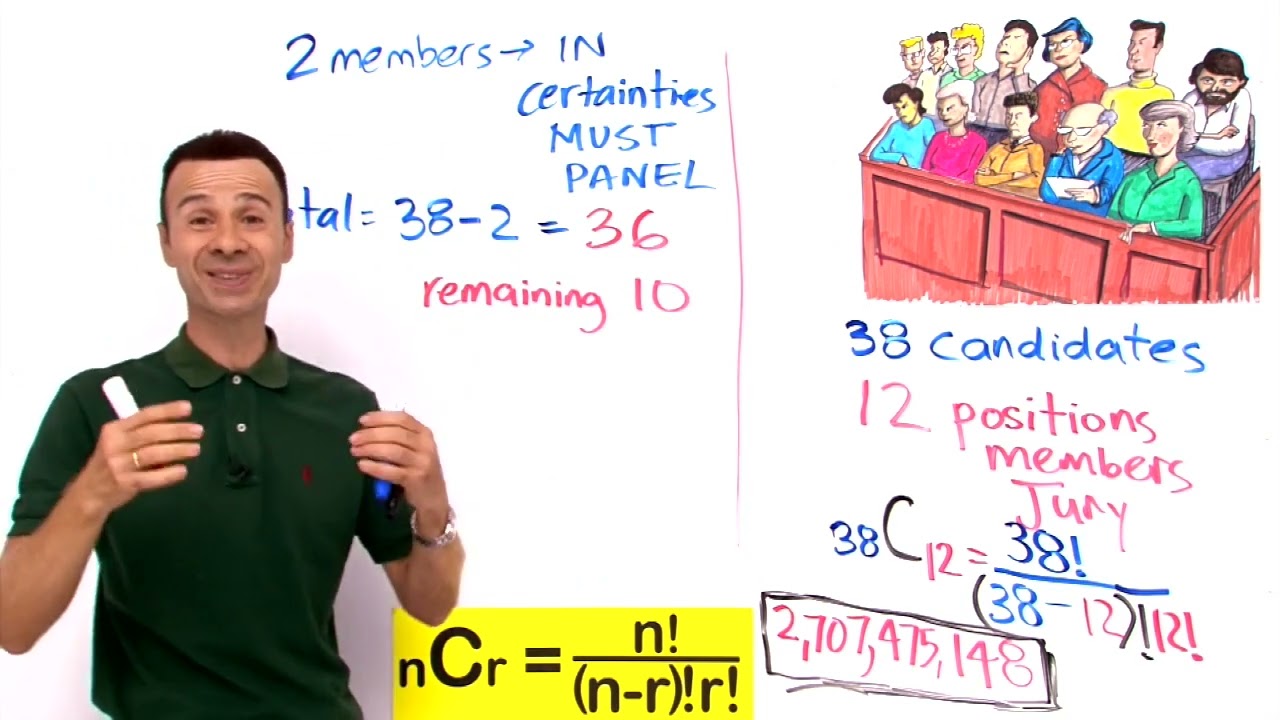 2 members → IN
certainties
MUST
PANEL
tal = 38 - 2 = 36
remaining 10
38 candidates
12 positions
members
Jury
38C12 = 38!
(38 - 12)! 12!
2,707,475,148
nCr = n!
(n-r)!r!